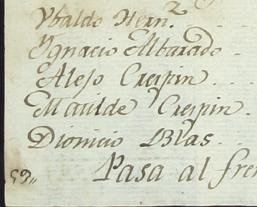 Ybaldo Hernz.
Ygnacio Albarado.
Alejo Crespin
Matilde Crespin.
Dionicio Blas.
Pasa al fren